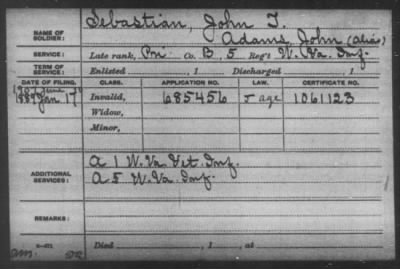 NAME OF SOLDIER: Sebastian, John T.
Adams, John (alias)
SERVICE: Late rank, Pvt Co. B, 5 Reg't W. Va. Inf.
TERM OF SERVICE: Enlisted , 1 Discharged , 1
DATE OF FILING. CLASS. APPLICATION NO. LAW. CERTIFICATE NO.
1889 Jan 17 Invalid, 685456 age 1061123
Widow,
Minor,
ADDITIONAL SERVICES: A 1 W. Va. Vet. Inf.
A 5 W. Va. Inf.
REMARKS:
Died , 1 , at